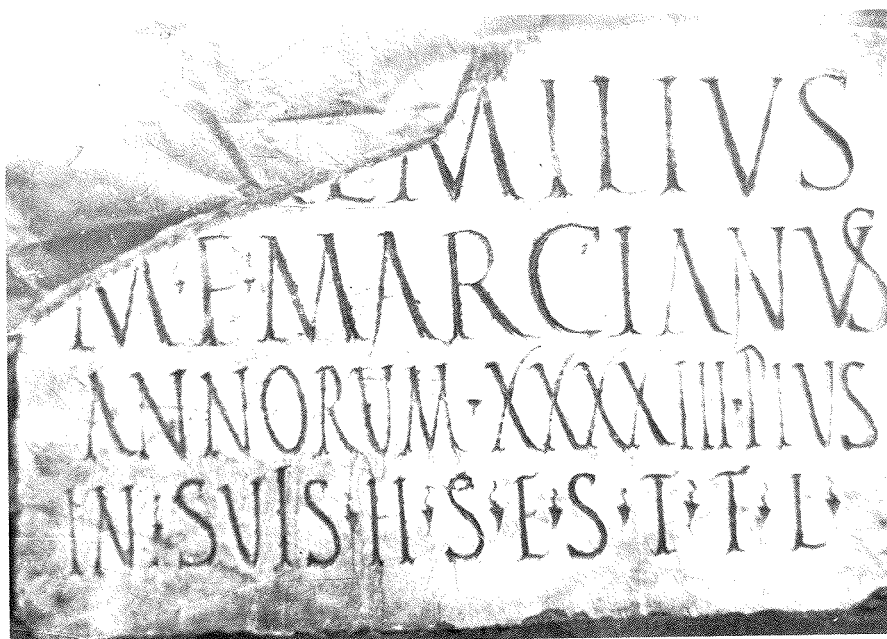 AEMILIVS
M·F·MARCIANVS
ANNORVM·XXXXIII·PIVS
IN·SVIS·H·S·E·S·T·T·L·